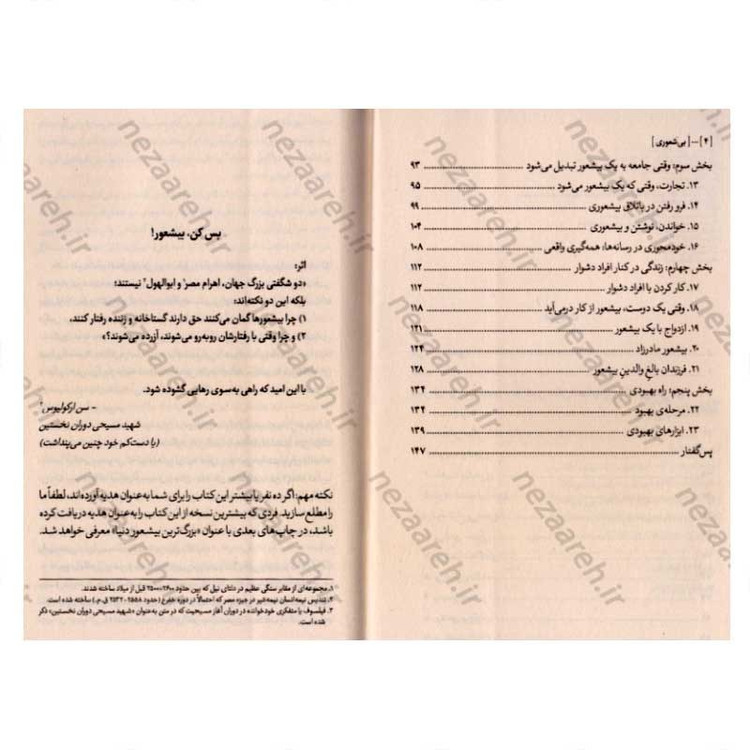 [۴] — [بی‌شعوری]
بخش سوم: وقتی جامعه به یک بیشعور تبدیل می‌شود ۹۳
۱۳. تجارت، وقتی که یک بیشعور می‌شود ۹۵
۱۴. فرو رفتن در باتلاق بیشعوری ۹۹
۱۵. خواندن، نوشتن و بیشعوری ۱۰۴
۱۶. خودمحوری در رسانه‌ها، همه‌گیری واقعی ۱۰۸
بخش چهارم: زندگی در کنار افراد دشوار ۱۱۲
۱۷. کار کردن با افراد دشوار ۱۱۲
۱۸. وقتی یک دوست، بیشعور از کار درمی‌آید ۱۱۸
۱۹. ازدواج با یک بیشعور ۱۲۱
۲۰. بیشعور مادرزاد ۱۲۴
۲۱. فرزندان بالغِ والدینِ بیشعور ۱۲۸
بخش پنجم: راه بهبودی ۱۳۴
۲۲. مرحله‌ی بهبود ۱۳۴
۲۳. ابزارهای بهبودی ۱۳۹
پس‌گفتار ۱۴۷
بس کن، بیشعور!
اثر:
«دو شگفتی بزرگ جهان، اهرام مصر۱ و ابوالهول۲ نیستند؛
بلکه این دو نکته‌اند:
۱) چرا بیشعورها گمان می‌کنند حق دارند گستاخانه و زننده رفتار کنند،
۲) و چرا وقتی با رفتارشان روبه‌رو می‌شوند، آزرده می‌شوند؟»
با این امید که راهی به‌سوی رهایی گشوده شود.
- سن ارکولیوس۳
شهید مسیحی دوران نخستین
(یا دست‌کم خود چنین می‌پنداشت)
نکته مهم: اگر ده نفر یا بیشتر این کتاب را برای شما به‌عنوان هدیه آورده‌اند، لطفاً ما
را مطلع سازید. فردی که بیشترین نسخه از این کتاب را به‌عنوان هدیه دریافت کرده
باشد، در چاپ‌های بعدی با عنوان «بزرگ‌ترین بیشعور دنیا» معرفی خواهد شد.
۱. مجموعه‌ای از مقابر سنگی عظیم در دلتای نیل که بین حدود ۲۶۰۰-۲۵۰۰ قبل از میلاد ساخته شدند.
۲. تندیس نیمه‌انسان نیمه‌شیر در جیزه مصر که احتمالاً در دوره خفرع (حدود ۲۵۵۸-۲۵۳۲ ق.م.) ساخته شده است.
۳. فیلسوف یا متفکری خودخوانده در دوران آغاز مسیحیت که در متن به‌عنوان «شهید مسیحی دوران نخستین» ذکر
شده است.
nezaareh.ir
نظاره